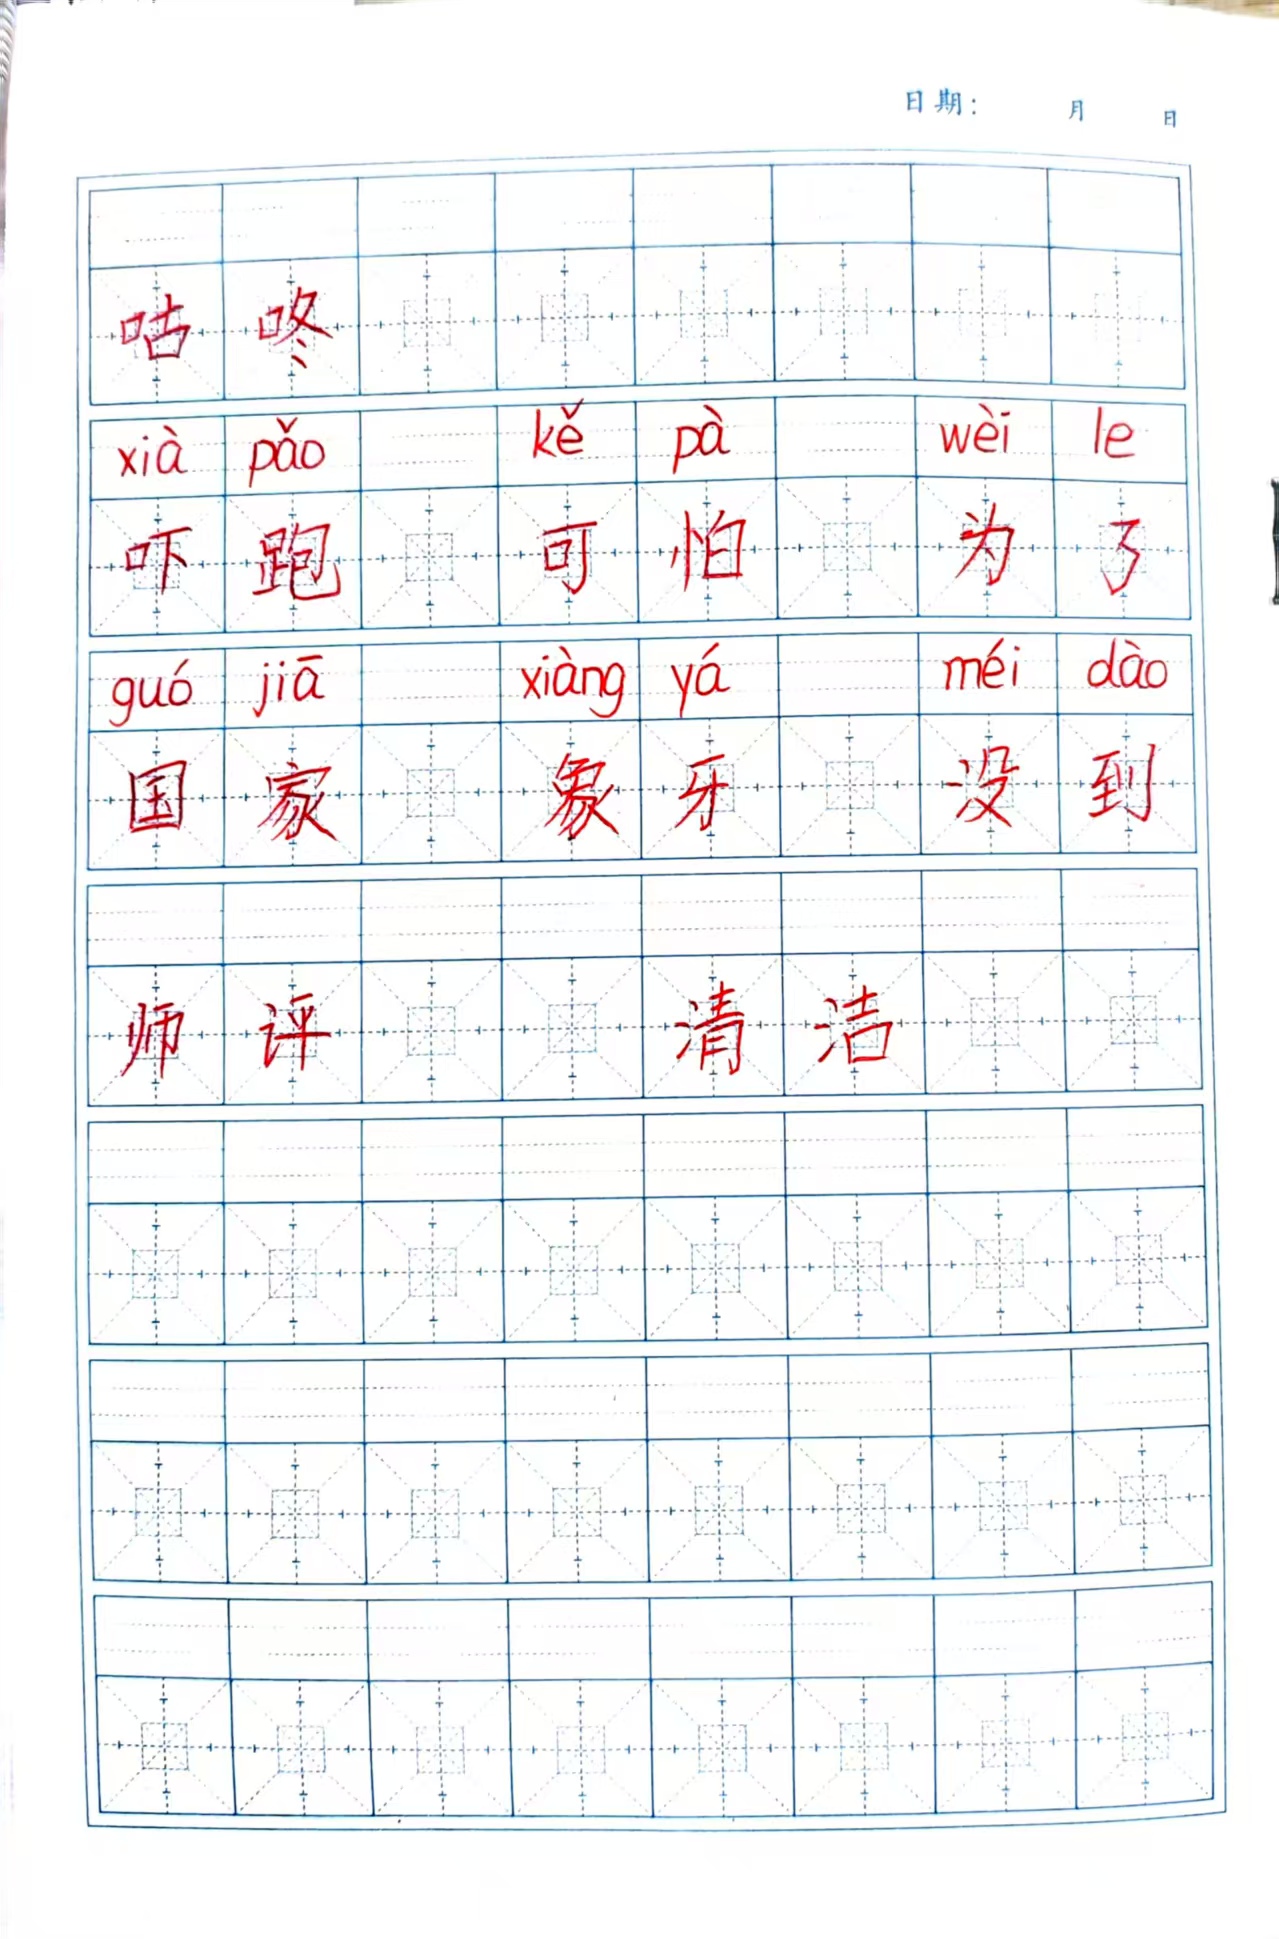 日期： 月 日
咕 咚
xià pǎo kě pà wèi le
吓 跑 可 怕 为 了
guó jiā xiàng yá méi dào
国 家 象 牙 没 到
师 评 清 洁